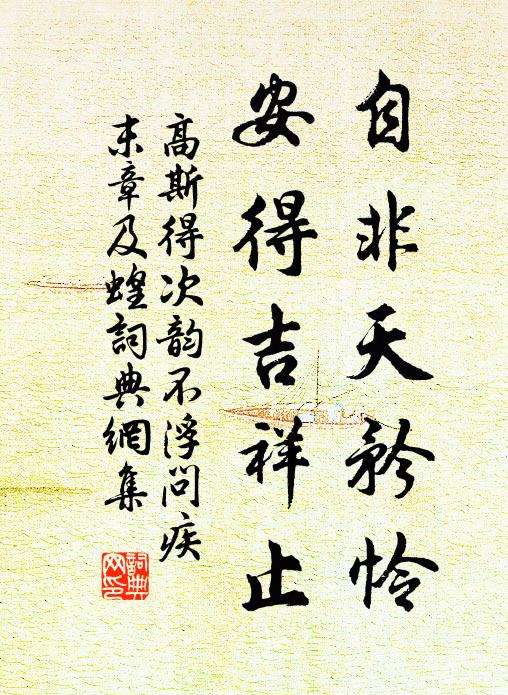 自非天矜怜
安得吉祥止
高斯得次韵不浮问疾
末章及蝗詞典網集
詞典网印